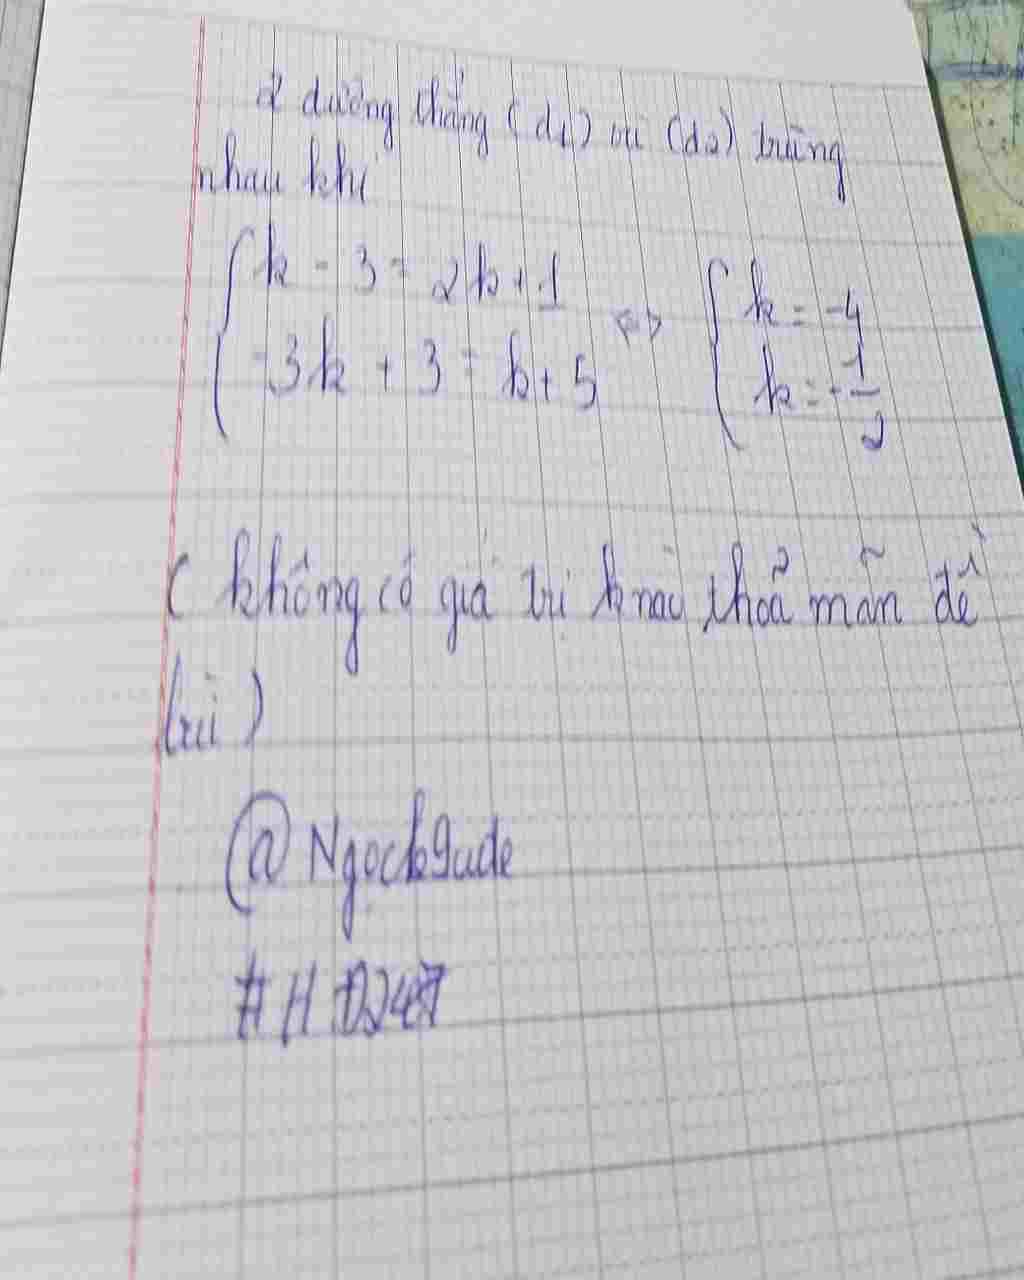 2 đường thẳng (d1) và (d2) trùng
nhau khi
{ k - 3 = 2k + 1 <=> { k = -4
{ -3k + 3 = k + 5 { k = -1/2
( không có giá trị k nào thoả mãn đề
bài )
@ Ngock9ude
# H D247